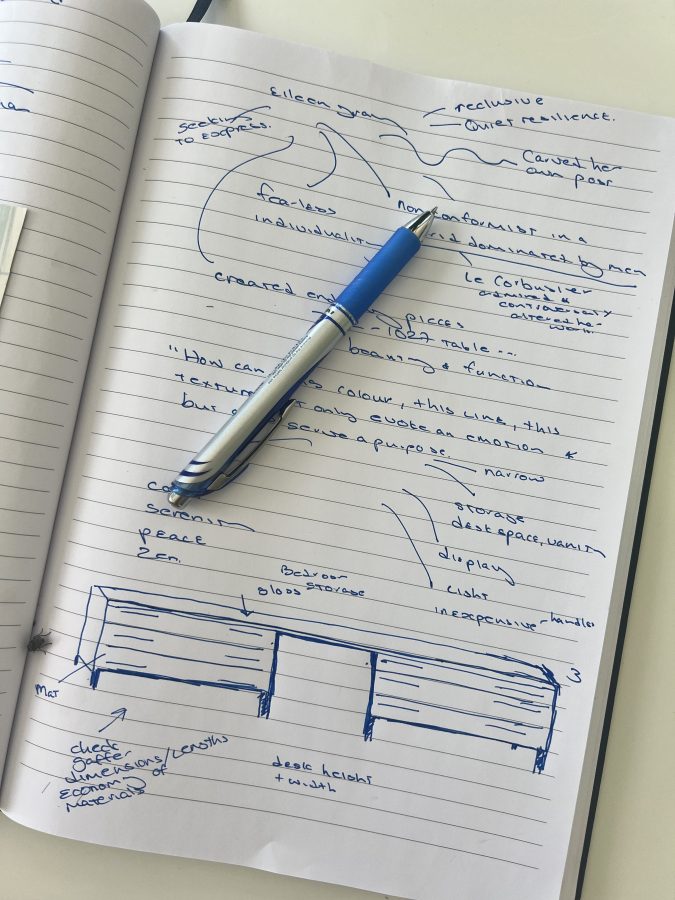 Eileen gray
reclusive
Quiet resilience.
seeking
to express.
Carved her
own path
fearless
individuality
non conformist in a
dominated by men
Le Corbusier
admired &
controversially
altered her
work.
created
pieces
-1027 table ...
beauty & function
"How can this colour, this line, this
texture
but only evoke an emotion &
serve a purpose.
narrow
storage
desk space, vanity
display
Light
inexpensive - handles
serenity
peace
Zen.
Bedroom
storage
3
Mat
check
dimensions/Lengths
Economy of
Materials
desk height
+ width